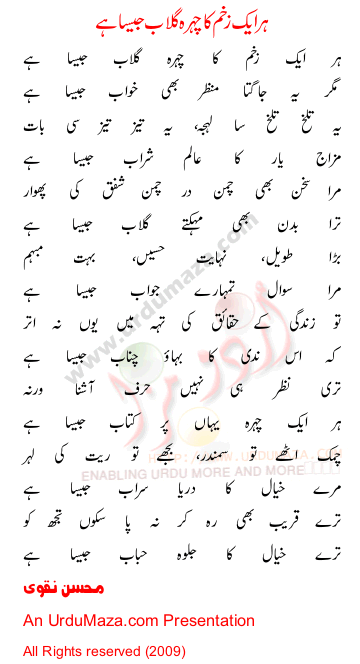 ہر ایک زخم کا چہرہ گلاب جیسا ہے
ہر ایک زخم کا چہرہ گلاب جیسا ہے
مگر یہ جاگتا منظر بھی خواب جیسا ہے
یہ تلخ تلخ سا لہجہ، یہ تیز تیز سی بات
مزاج یار کا عالم شراب جیسا ہے
مرا سخن بھی چمن در چمن شفق کی پھوار
ترا بدن بھی مہکتے گلاب جیسا ہے
بڑا طویل، نہایت حسیں، بہت مبہم
مرا سوال تمہارے جواب جیسا ہے
تو زندگی کے حقائق کی تہہ میں یوں نہ اتر
کہ اس ندی کا بہاؤ چناب جیسا ہے
تری نظر ہی نہیں حرف آشنا ورنہ
ہر ایک چہرہ یہاں پر کتاب جیسا ہے
چمک اٹھے تو سمندر، بجھے تو ریت کی لہر
مرے خیال کا دریا سراب جیسا ہے
ترے قریب بھی رہ کر نہ پا سکوں تجھ کو
ترے خیال کا جلوہ حباب جیسا ہے
محسن نقوی
An UrduMaza.com Presentation
All Rights reserved (2009)
www.urdumaza.com
اردو مزا
HTTP://WWW.URDUMAZA.COM
ENABLING URDU MORE AND MORE